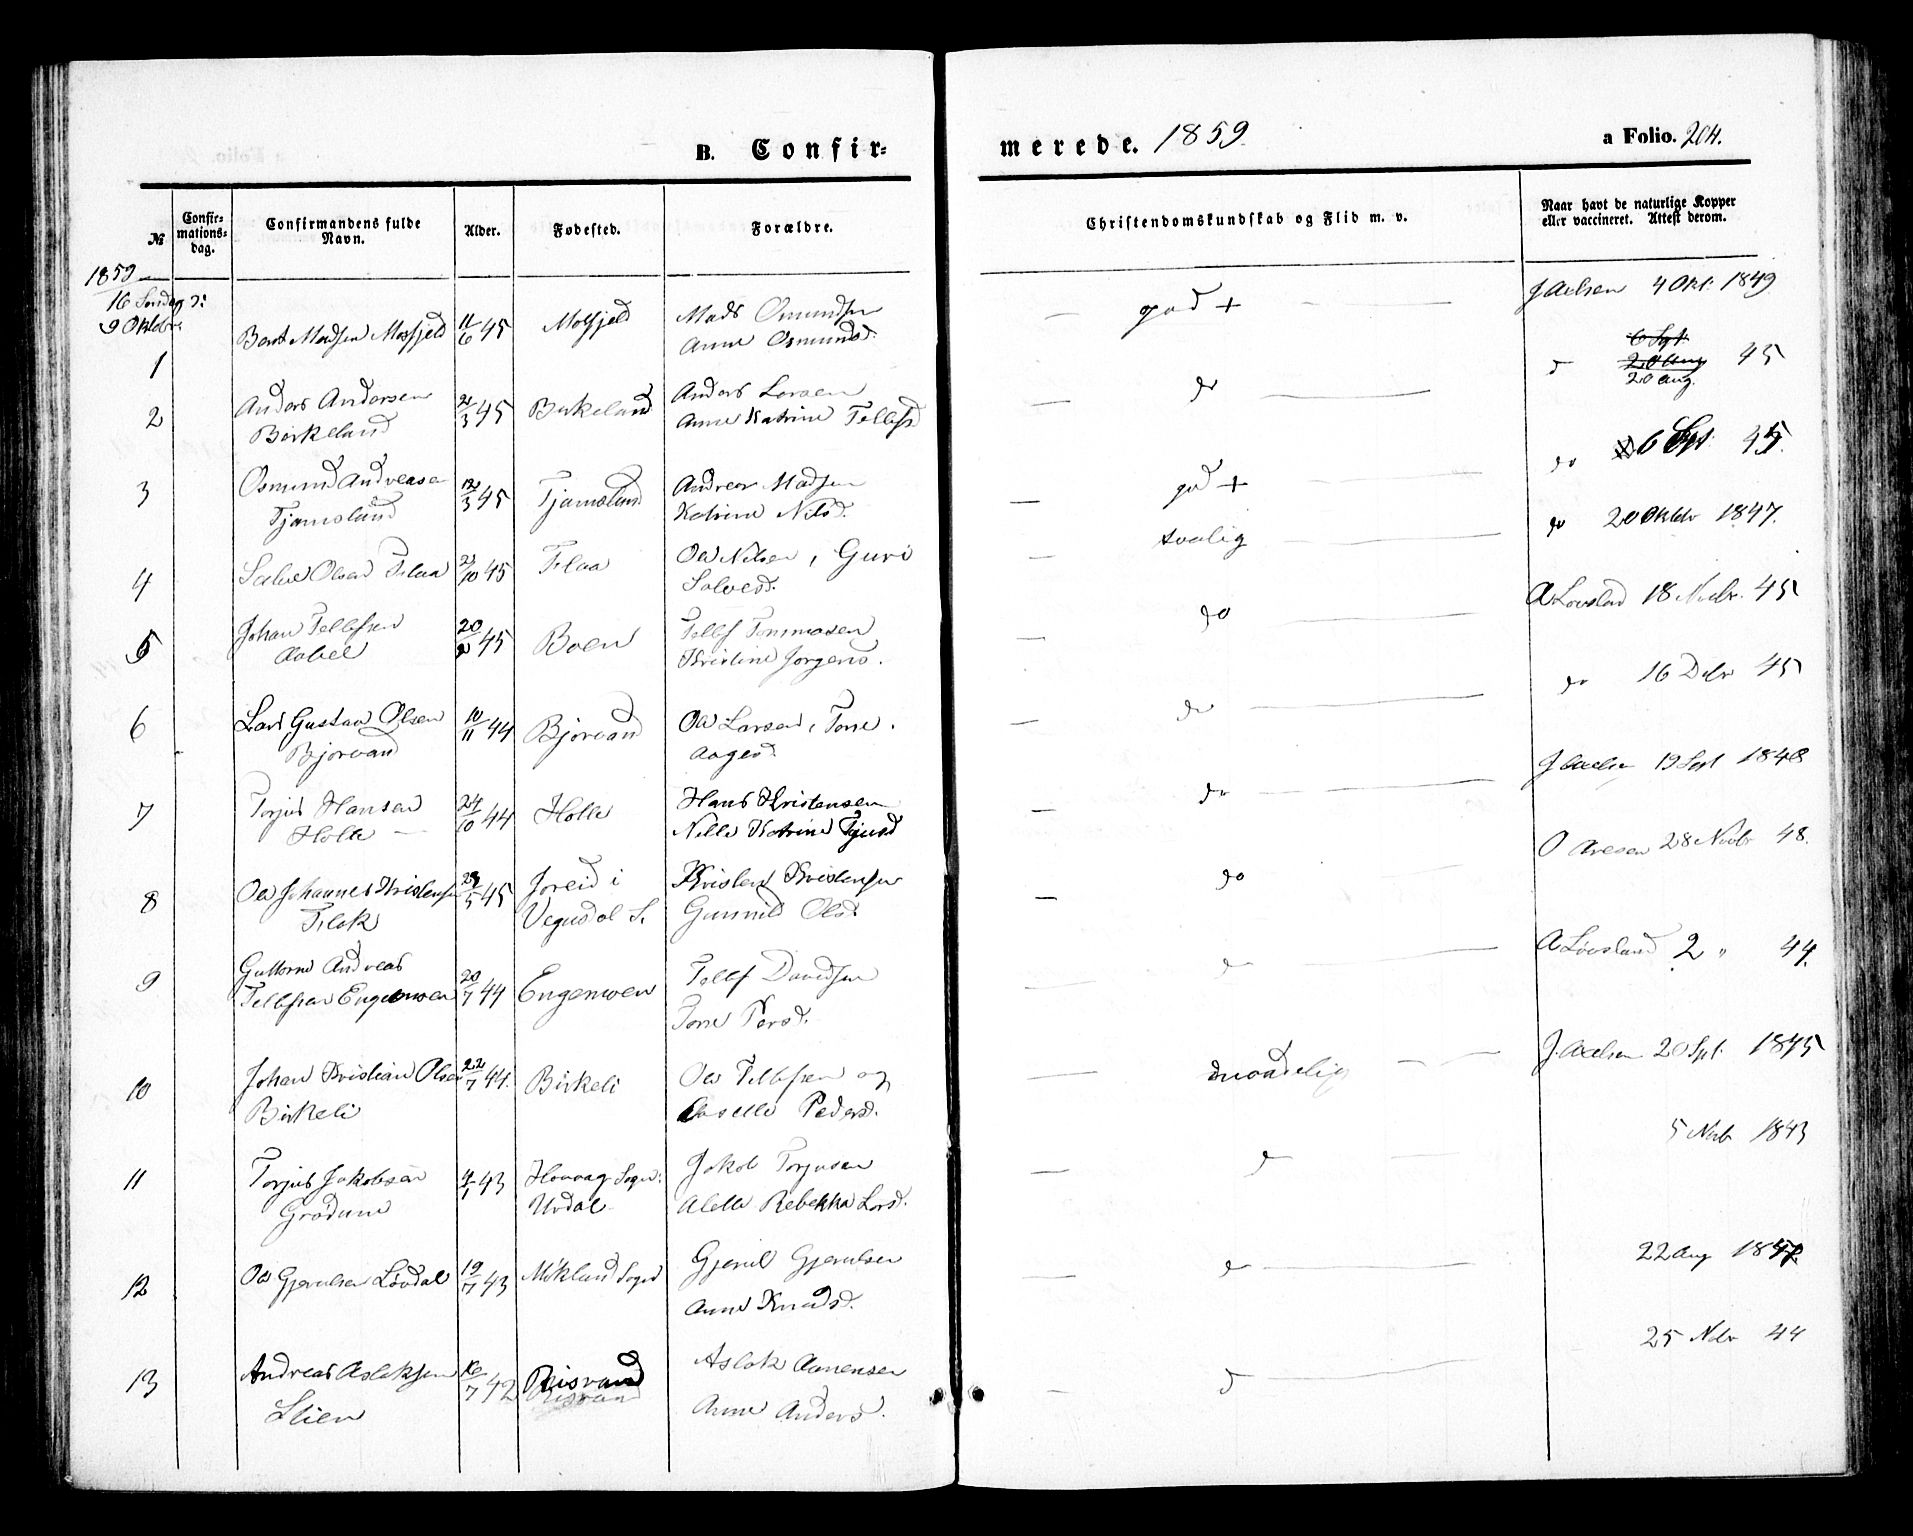 B. Confir-
merede. 1859.
a Folio. 204.
№
Confir-
mations-
dag.
Confirmandens fulde
Navn.
Alder.
Fødested.
Forældre.
Christendomskundskab og Flid m. v.
Naar havt de naturlige Kopper
eller vaccineret. Attest derom.
1859
16 Søndag
9 Oktobr
1
Madsen Mosfjeld 11/6 45 Mosfjeld Mads Osmundsen
Anne Osmundsd.
god +
4 Okt 1849
2
Anders Andersen
Birkeland
45 Birkeland Anders Larsen
Anne Katrine Tellefsd
do
6 Sept
20 Aug
20 aug.
45
3
Osmund Andreasen
Tjamsland
12/3 45 Tjamsland Andreas Madsen
Katrine Nilsd.
god +
do 6 Sept 45.
4
Olsen Flaa 45 Flaa Ole Nilsen, Guri
Salvesd.
tvalig
do 20 Oktobr 1847.
5
Johan Tellefsen
20 45 Boen Tellef Tommasen
Kristine Jørgens.
do
18 Novbr. 45
6
Lars Gustav Olsen
Bjorvand
10/11 44 Bjorvand Ole Larsen, Tone
Aagesd.
do
do 16 Debr 45
7
Torjus Hansen
Holte
24/10 44 Holte Hans Kristensen
Nille Katrine
do
19 Sept 1848
8
Ole Johannes Kristensen
Flak
45 Joreid i
Vegusdal S.
Kristen Kristensen
Gunnild Olsd.
do
O Aresen 28 Novbr 48.
9
Guttorm Andreas
Tellefsen Engemoen
20/7 44 Engemoen Tellef Davidsen
Tone Persd.
A Løvsland 2 " 44.
10
Johan Kristian Olsen
Birkeli
22/7 44. Birkeli Ole Tellefsen og
Aaselle Pedersd.
maadelig
20 Spt. 1845
11
Torjus Jakobsen
Grødum
43 Hovaag Sogn:
Urdal
Jakob Torjusen
Alette Rebekka Larsd.
5 Novb 1843
12
Ole Gjerulsen Løvdal 19/7 43 Mykland Sogn Gjerul Gjerulsen
Anne Knudsd.
22 Aug
13
Andreas Aslaksen
Lien
16/7 42 Risvand
Risvand
Aslak Aanensen
Anne Andersd.
25 Nobr 44